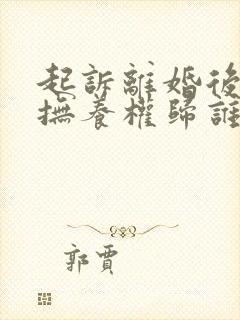 起訴離婚後
撫養權歸誰
郭賈